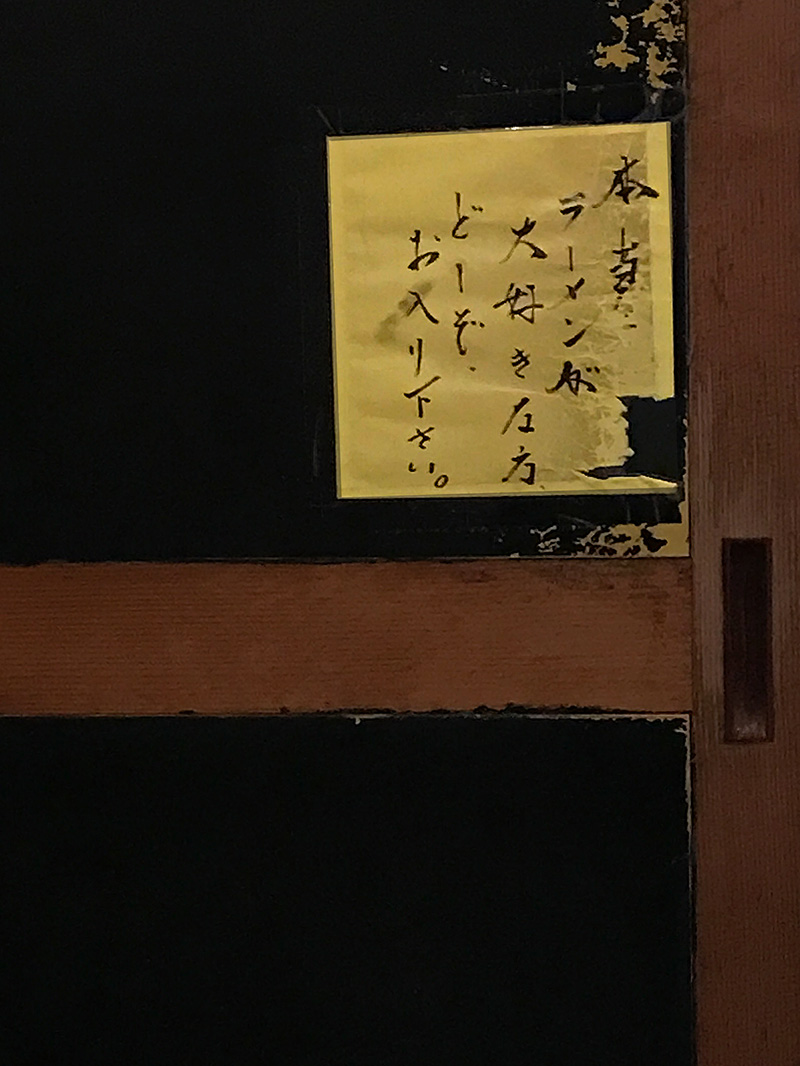 本
ラーメンが
大好きな方
どーぞ、
お入り下さい。